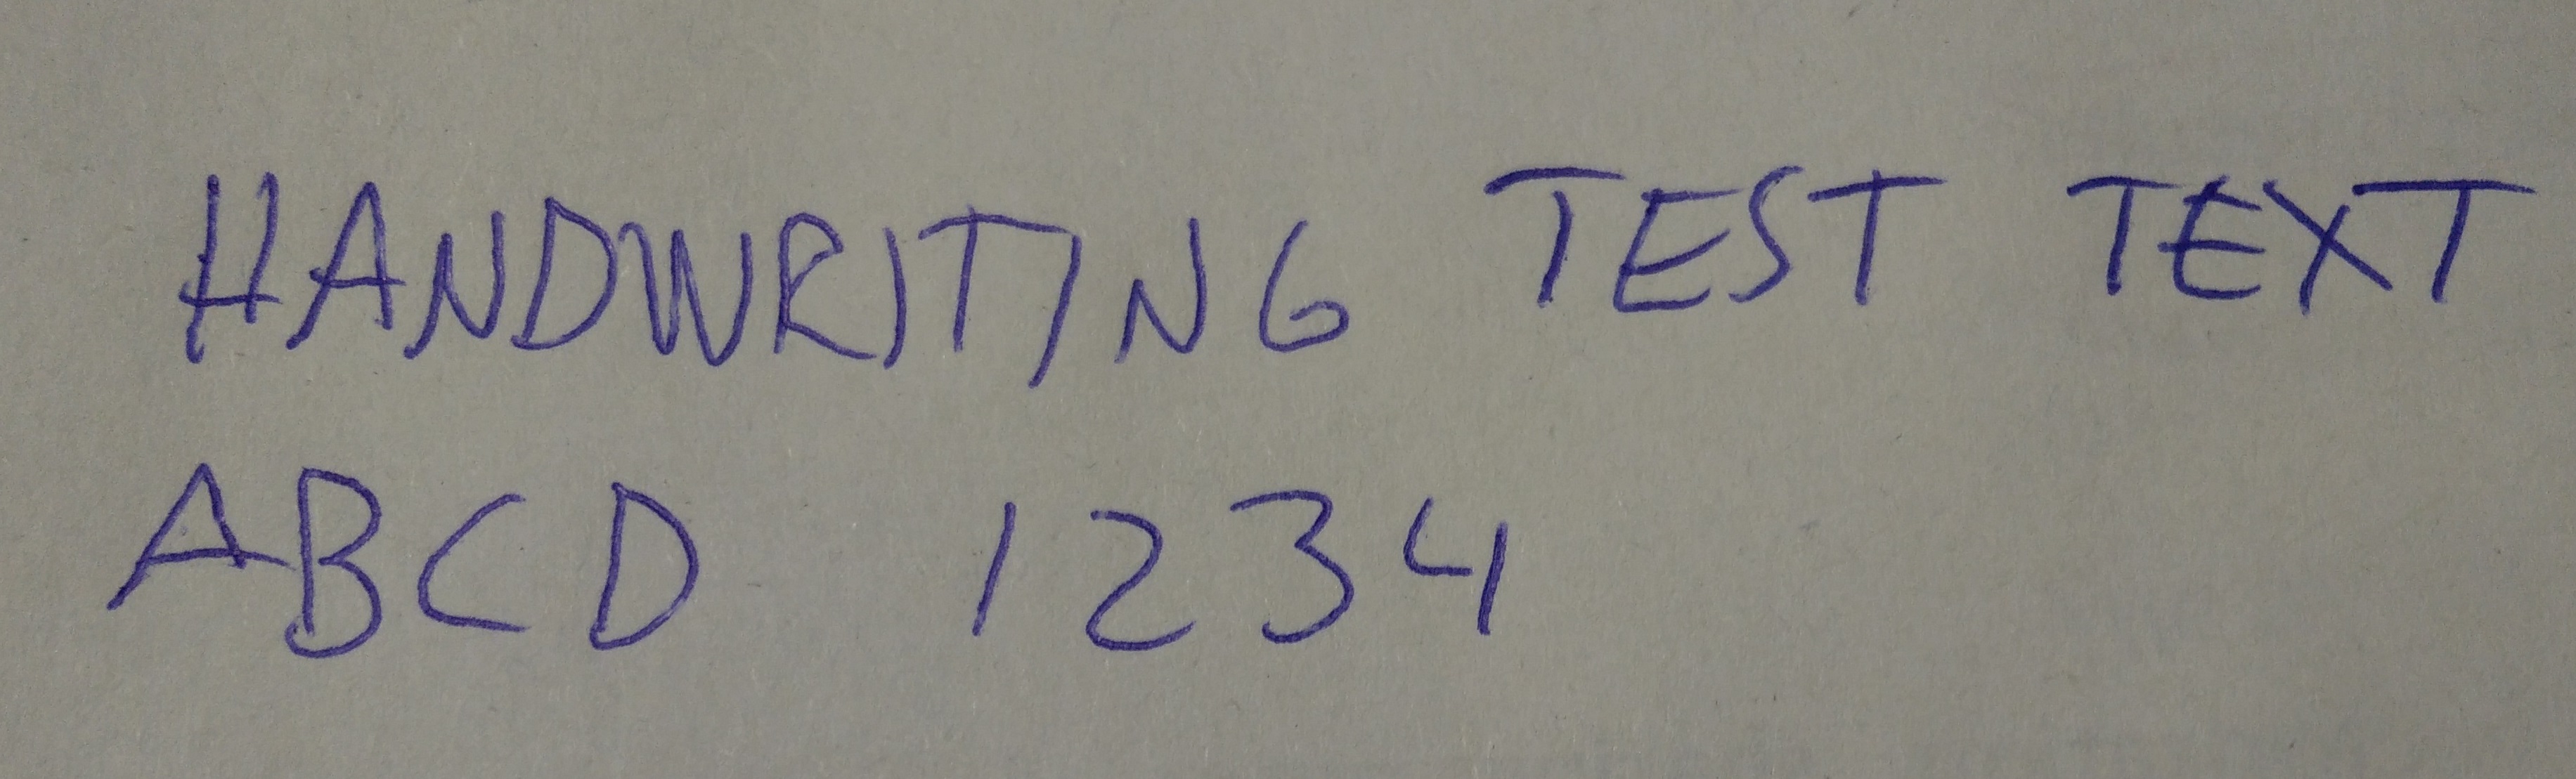 HANDWRITING TEST TEXT
ABCD 1234